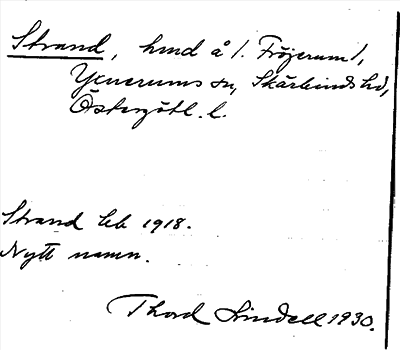 Strand, hmd å /. Fröjerum/,
Yxnerums sn, Skärkinds hd,
Östergötl. l.
Strand lkk 1918.
Nytt namn.
Thord Lindell 1930.